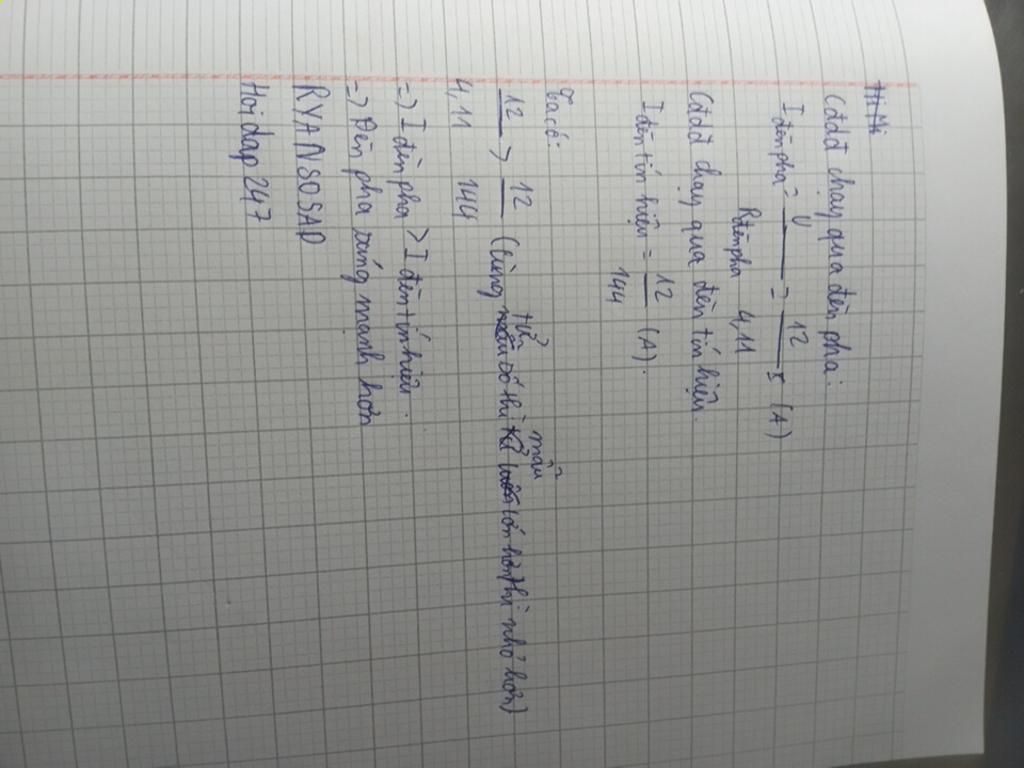 Cđdđ chạy qua đèn pha:
I đèn pha = U / R đèn pha = 12 / 4,11 (A)
Cđdđ chạy qua đèn tín hiệu.
I đèn tín hiệu = 12 / 144 (A).
Ta có:
12 / 4,11 > 12 / 144 (Cùng tử số thì mẫu lớn hơn thì nhỏ hơn)
=) I đèn pha > I đèn tín hiệu.
=) Đèn pha sáng mạnh hơn
RYANSOSAD
Hoidap247